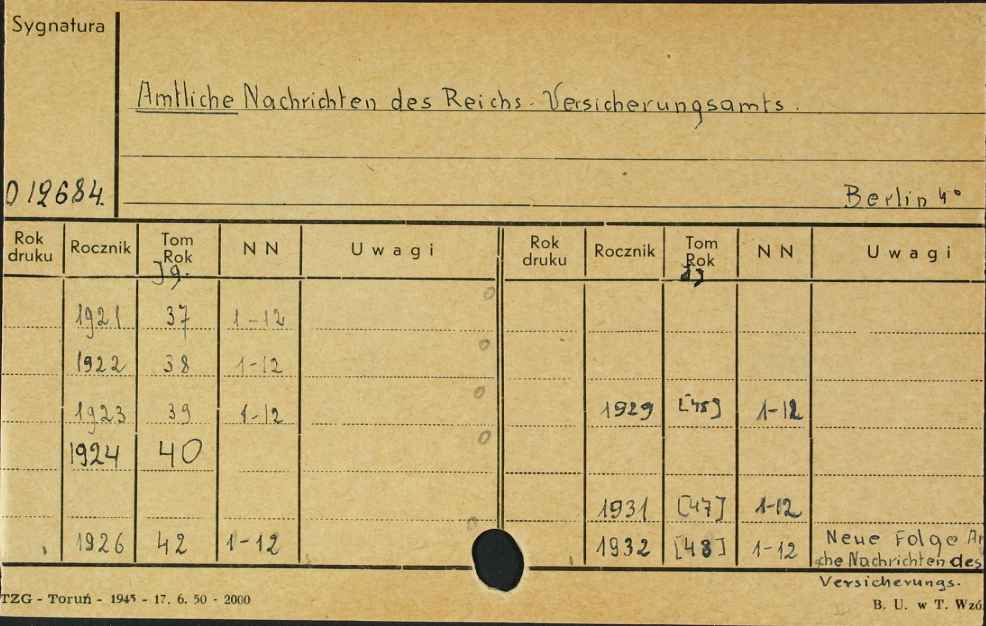 Sygnatura
Amtliche Nachrichten des Reichs-Versicherungsamts.
O 12684.
Berlin 4°
Rok druku Rocznik Tom Rok Jg. N N Uwagi Rok druku Rocznik Tom Rok N N Uwagi
1921 37 1-12
1922 38 1-12
1923 39 1-12 1929 [45] 1-12
1924 40
1931 [47] 1-12
1926 42 1-12 1932 [48] 1-12 Neue Folge
che Nachrichten des
Versicherungs.
TZG - Toruń - 1945 - 17. 6. 50 - 2000
B. U. w T. Wzó